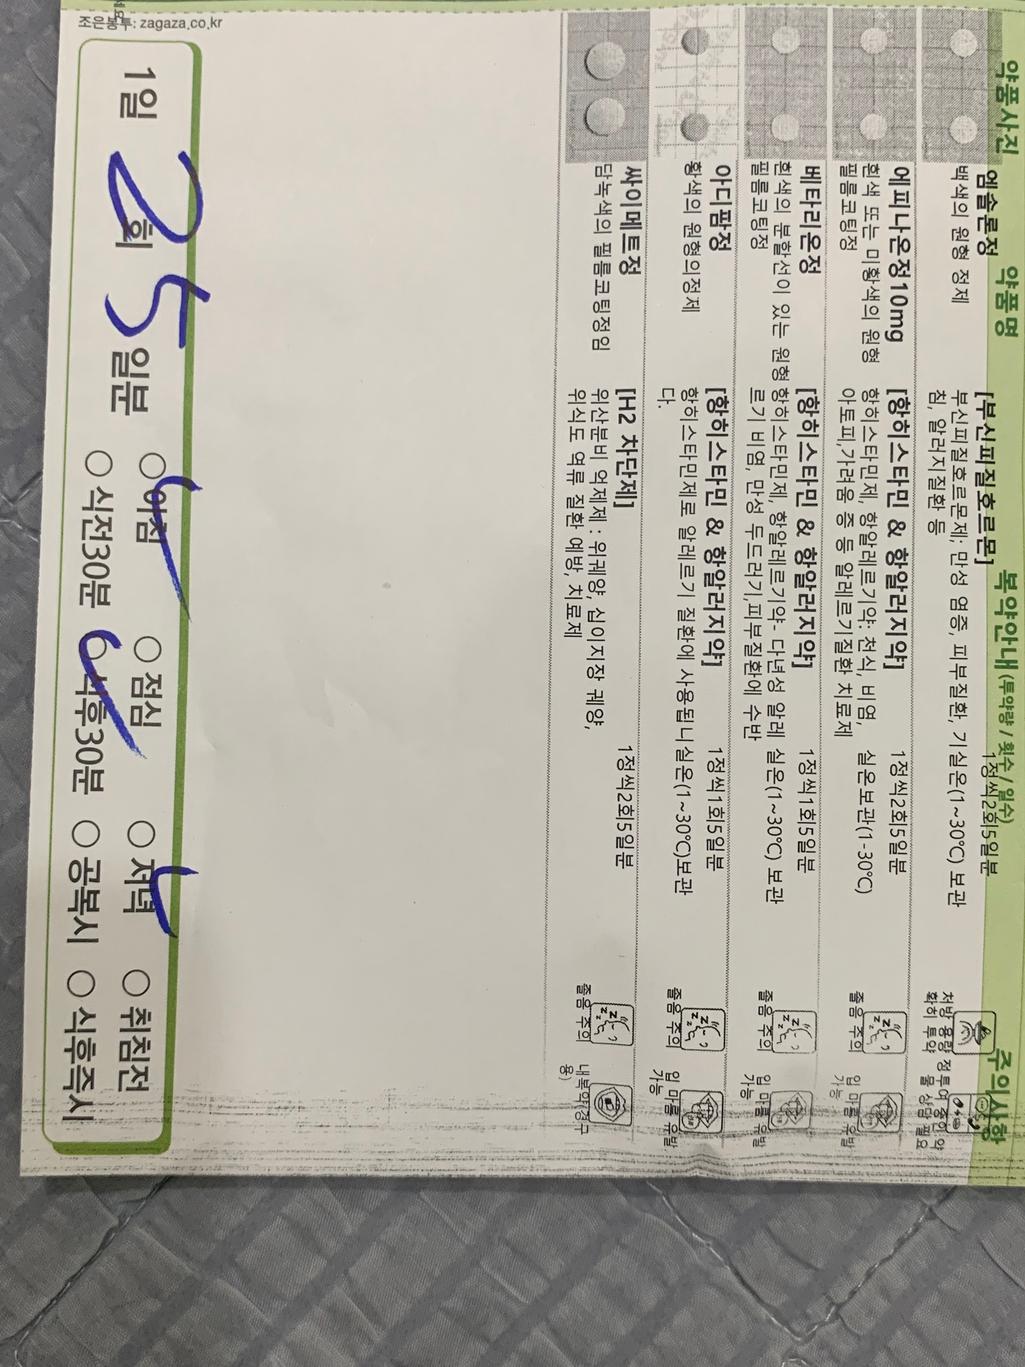 약품사진 약품명 복약안내(투약량 / 횟수 / 일수) 주의사항
엠솔론정
백색의 원형 정제
[부신피질호르몬]
1정씩2회5일분
부신피질호르몬제; 만성 염증, 피부질환, 기실온(1~30℃) 보관
침, 알러지질환 등
처방 용량 정
확히 투약
투여 중인 약
물 상담 필요
에피나온정10mg
흰색 또는 미황색의 원형
필름코팅정
[항히스타민 & 항알러지약]
1정씩2회5일분
항히스타민제, 항알레르기약: 천식, 비염, 실온보관(1-30℃)
아토피,가려움 증 등 알레르기질환 치료제
졸음 주의
입 마름 유발
가능
베타리온정
흰색의 분할선이 있는 원형
필름코팅정
[항히스타민 & 항알러지약]
1정씩1회5일분
항히스타민제, 항알레르기약- 다년성 알레 실온(1~30℃) 보관
르기 비염, 만성 두드러기,피부질환에 수반
졸음 주의
입 마름 유발
가능
아디팜정
황색의 원형의정제
[항히스타민 & 항알러지약]
1정씩1회5일분
항히스타민제로 알레르기 질환에 사용됩니실온(1~30℃)보관
다.
졸음 주의
입 마름 유발
가능
싸이메트정
담녹색의 필름코팅정임
[H2 차단제]
1정씩2회5일분
위산분비 억제제 : 위궤양, 십이지장 궤양,
위식도 역류 질환 예방, 치료제
졸음 주의
내복약(경구
용)
1일 2회 5일분 ○아침 ○점심 ○저녁 ○취침전
○식전30분 ○식후30분 ○공복시 ○식후즉시
조은봉투: zagaza.co.kr